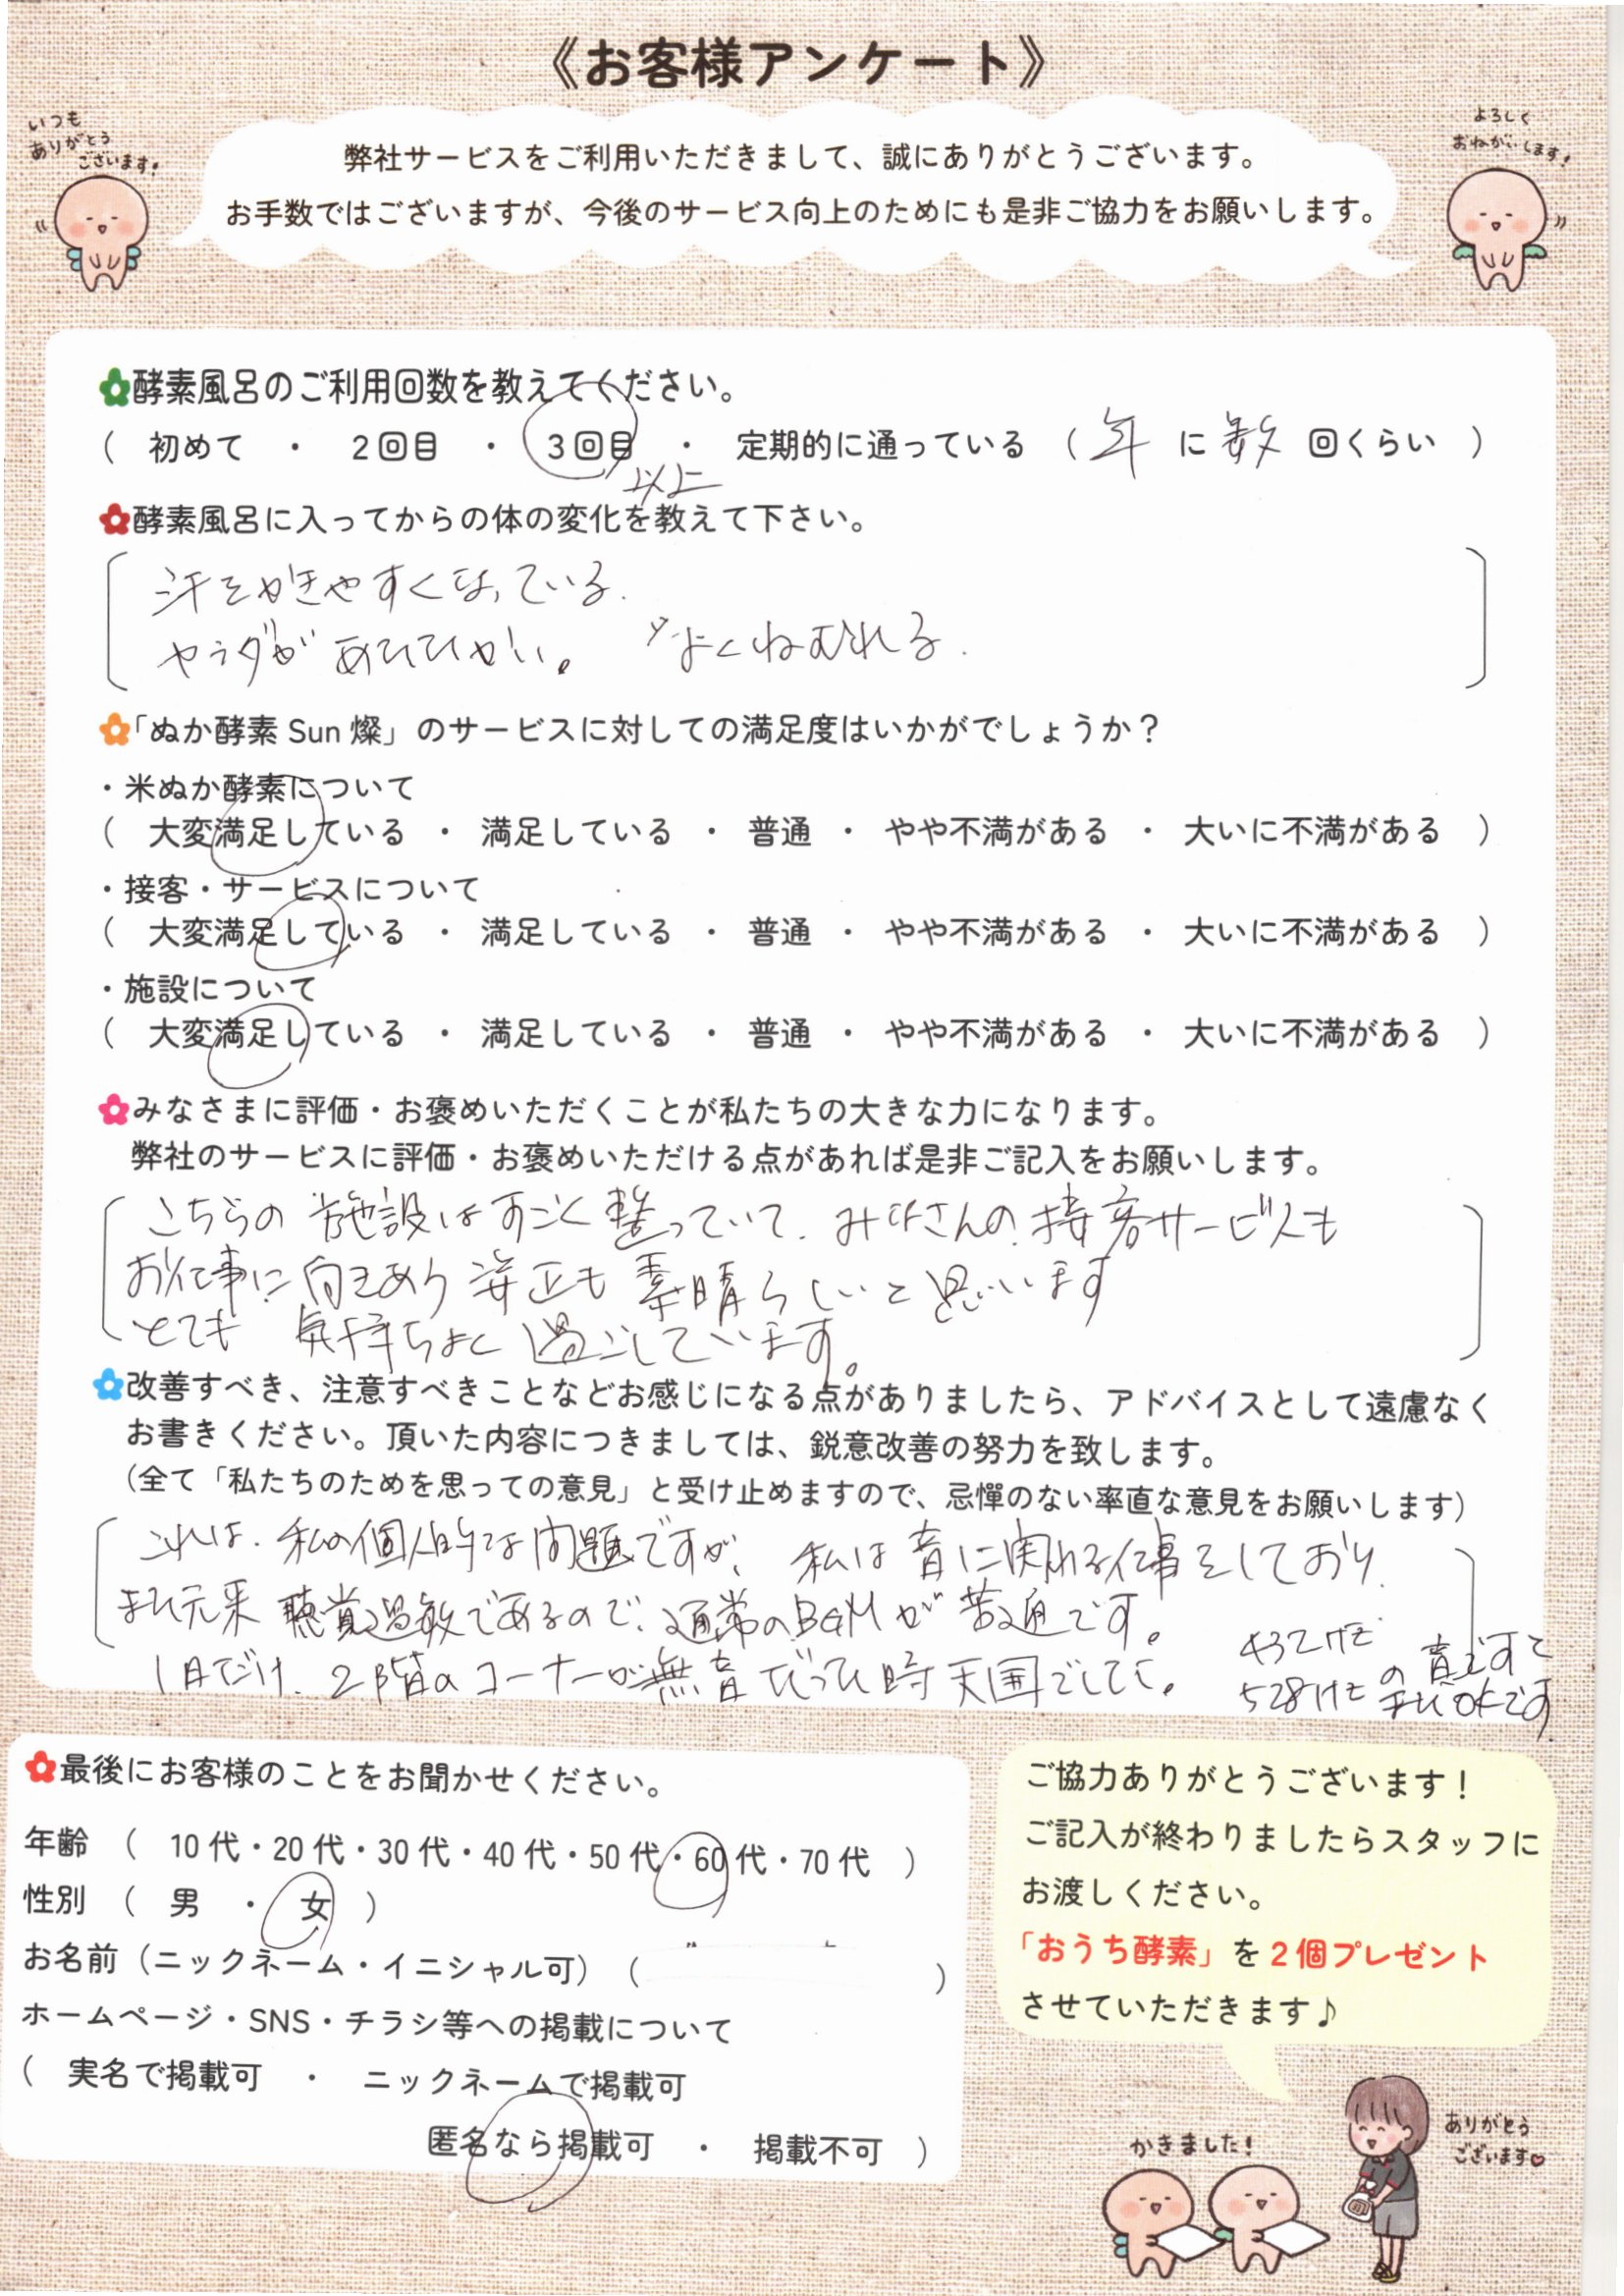 《お客様アンケート》
いつも
ありがとう
ございます!
よろしく
おねがいします!
弊社サービスをご利用いただきまして、誠にありがとうございます。
お手数ではございますが、今後のサービス向上のためにも是非ご協力をお願いします。
酵素風呂のご利用回数を教えてください。
( 初めて ・ 2回目 ・ 3回目 ・ 定期的に通っている ( 年 に 数 回くらい )
以上
酵素風呂に入ってからの体の変化を教えて下さい。
汗をかきやすくなっている.
カラダがあたたかい。 よくねむれる.
「ぬか酵素 Sun 燦」のサービスに対しての満足度はいかがでしょうか?
・米ぬか酵素について
( 大変満足している ・ 満足している ・ 普通 ・ やや不満がある ・ 大いに不満がある )
・接客・サービスについて
( 大変満足している ・ 満足している ・ 普通 ・ やや不満がある ・ 大いに不満がある )
・施設について
( 大変満足している ・ 満足している ・ 普通 ・ やや不満がある ・ 大いに不満がある )
みなさまに評価・お褒めいただくことが私たちの大きな力になります。
弊社のサービスに評価・お褒めいただける点があれば是非ご記入をお願いします。
こちらの施設はすごく整っていて、みなさんの接客サービスも
お仕事に向きあう姿正も素晴らしいと思います
とても 気持ちよく過ごしています。
改善すべき、注意すべきことなどお感じになる点がありましたら、アドバイスとして遠慮なく
お書きください。頂いた内容につきましては、鋭意改善の努力を致します。
(全て「私たちのためを思っての意見」と受け止めますので、忌憚のない率直な意見をお願いします)
これは、私の個人的な問題ですが、私は音に関わる仕事をしており、
また元来 聴覚過敏であるので、通常のBGMが苦通です。
1日だけ、2階のコーナーが無音だった時 天国でした。
432Hz
528Hz の音ですと
またOKです
最後にお客様のことをお聞かせください。
年齢 ( 10代・20代・30代・40代・50代・60代・70代 )
性別 ( 男 ・ 女 )
お名前(ニックネーム・イニシャル可)( )
ホームページ・SNS・チラシ等への掲載について
( 実名で掲載可 ・ ニックネームで掲載可
匿名なら掲載可 ・ 掲載不可 )
ご協力ありがとうございます!
ご記入が終わりましたらスタッフに
お渡しください。
「おうち酵素」を2個プレゼント
させていただきます♪
かきました!
ありがとう
ございます♡